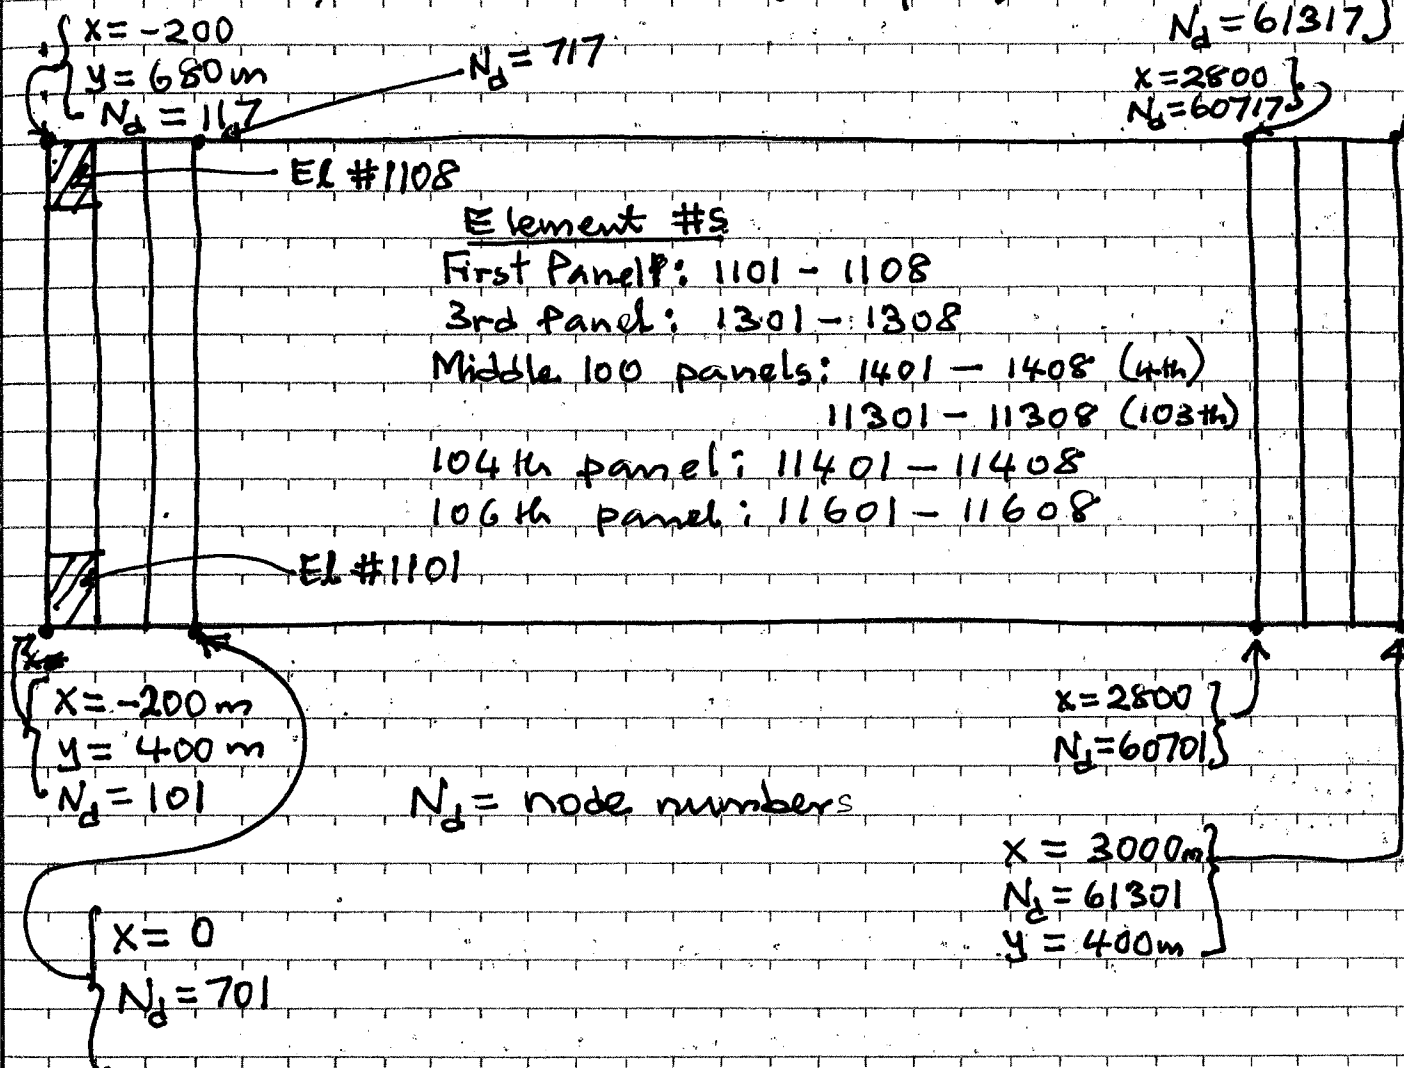 N_d = 61317
x = -200
y = 680m
N_d = 117
N_d = 717
x = 2800
N_d = 60717
El #1108
Element #s
First Panel: 1101 - 1108
3rd Panel: 1301 - 1308
Middle 100 panels: 1401 - 1408 (4th)
11301 - 11308 (103th)
104th panel: 11401 - 11408
106th panel: 11601 - 11608
El #1101
x =
x = -200m
y = 400m
N_d = 101
x = 2800
N_d = 60701
N_d = node numbers
x = 3000m
N_d = 61301
y = 400m
x = 0
N_d = 701